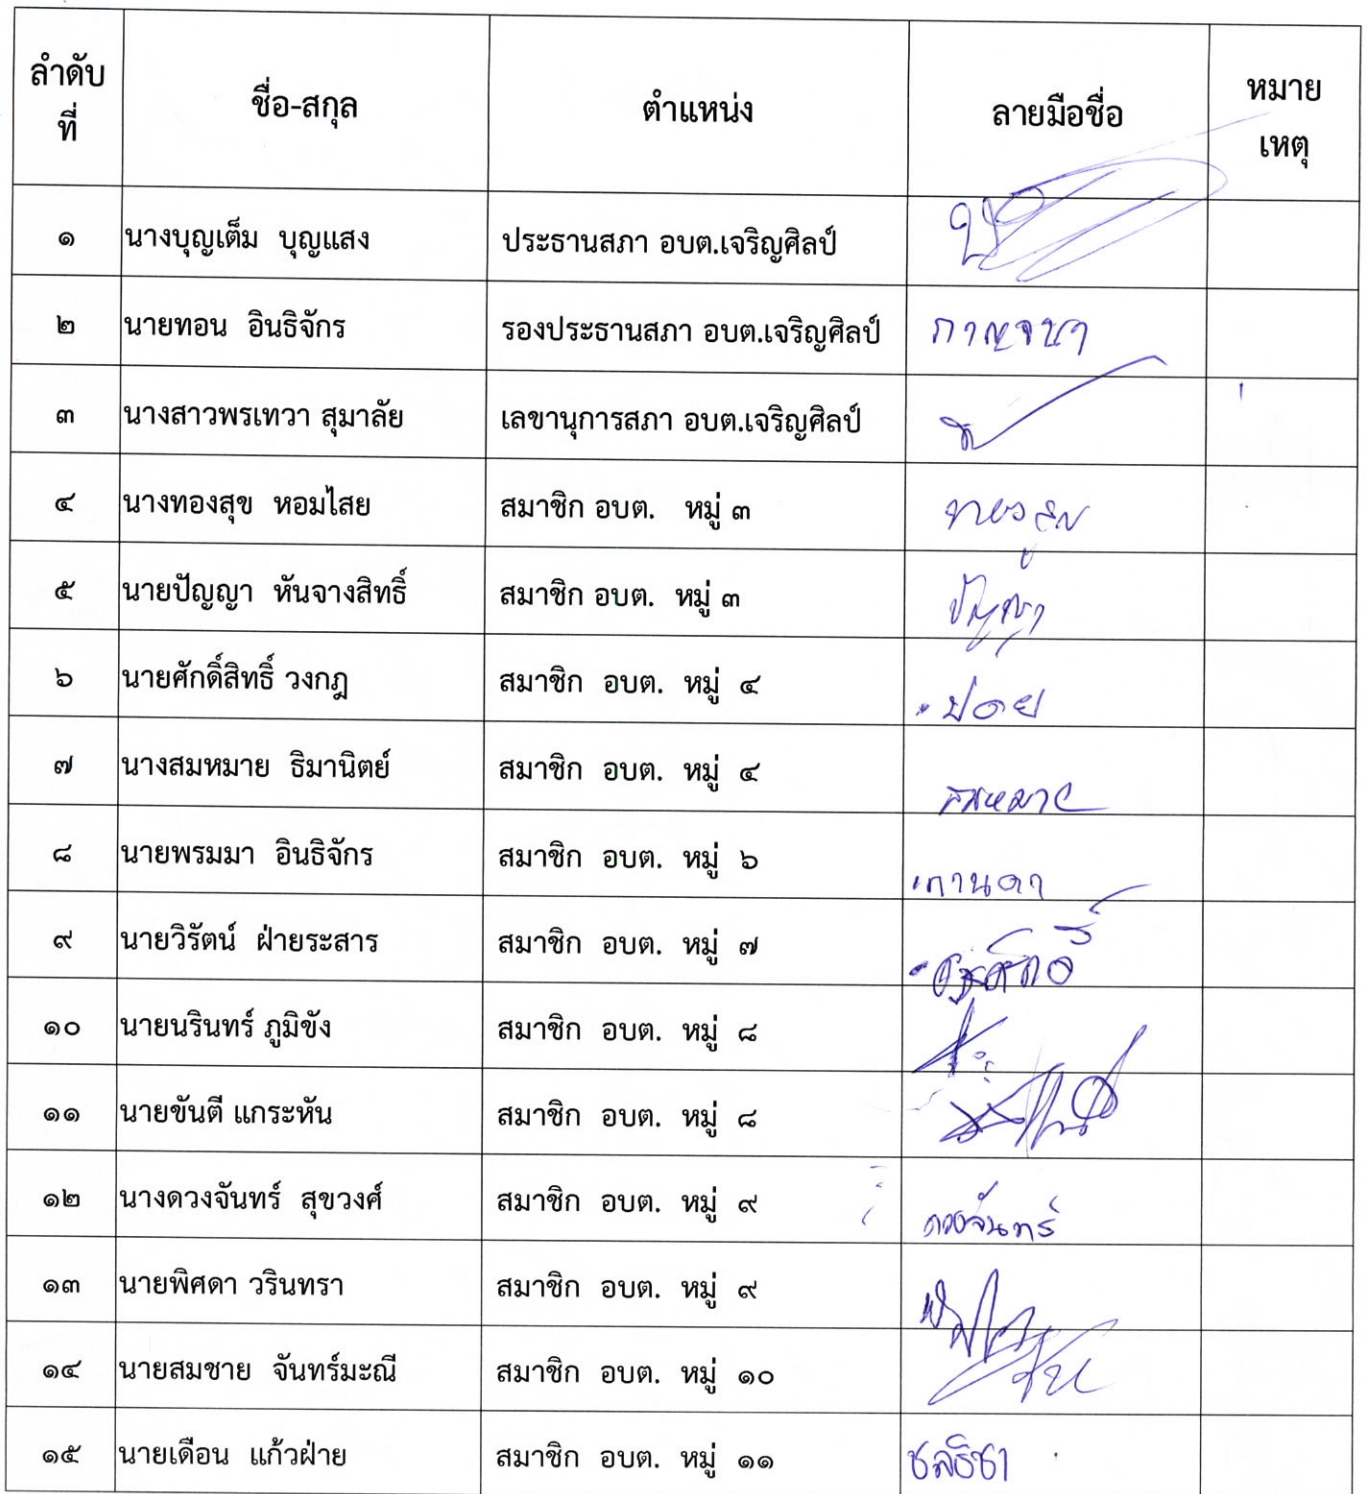 ลำดับ ชื่อ-สกุล ตำแหน่ง ลายมือชื่อ หมาย
ที่ เหตุ
๑ นางบุญเต็ม บุญแสง ประธานสภา อบต.เจริญศิลป์
๒ นายทอน อินธิจักร รองประธานสภา อบต.เจริญศิลป์ กาญจนา
๓ นางสาวพรเทวา สุมาลัย เลขานุการสภา อบต.เจริญศิลป์
๔ นางทองสุข หอมไสย สมาชิก อบต. หมู่ ๓
๕ นายปัญญา หันจางสิทธิ์ สมาชิก อบต. หมู่ ๓ ปัญญา
๖ นายศักดิ์สิทธิ์ วงกฎ สมาชิก อบต. หมู่ ๔
๗ นางสมหมาย ธิมานิตย์ สมาชิก อบต. หมู่ ๔ สมหมาย
๘ นายพรมมา อินธิจักร สมาชิก อบต. หมู่ ๖ กานดา
๙ นายวิรัตน์ ฝ่ายระสาร สมาชิก อบต. หมู่ ๗
๑๐ นายนรินทร์ ภูมิขัง สมาชิก อบต. หมู่ ๘
๑๑ นายขันตี แกระหัน สมาชิก อบต. หมู่ ๘
๑๒ นางดวงจันทร์ สุขวงศ์ สมาชิก อบต. หมู่ ๙ ดวงจันทร์
๑๓ นายพิศดา วรินทรา สมาชิก อบต. หมู่ ๙
๑๔ นายสมชาย จันทร์มะณี สมาชิก อบต. หมู่ ๑๐
๑๕ นายเดือน แก้วฝ่าย สมาชิก อบต. หมู่ ๑๑ ชลธิชา